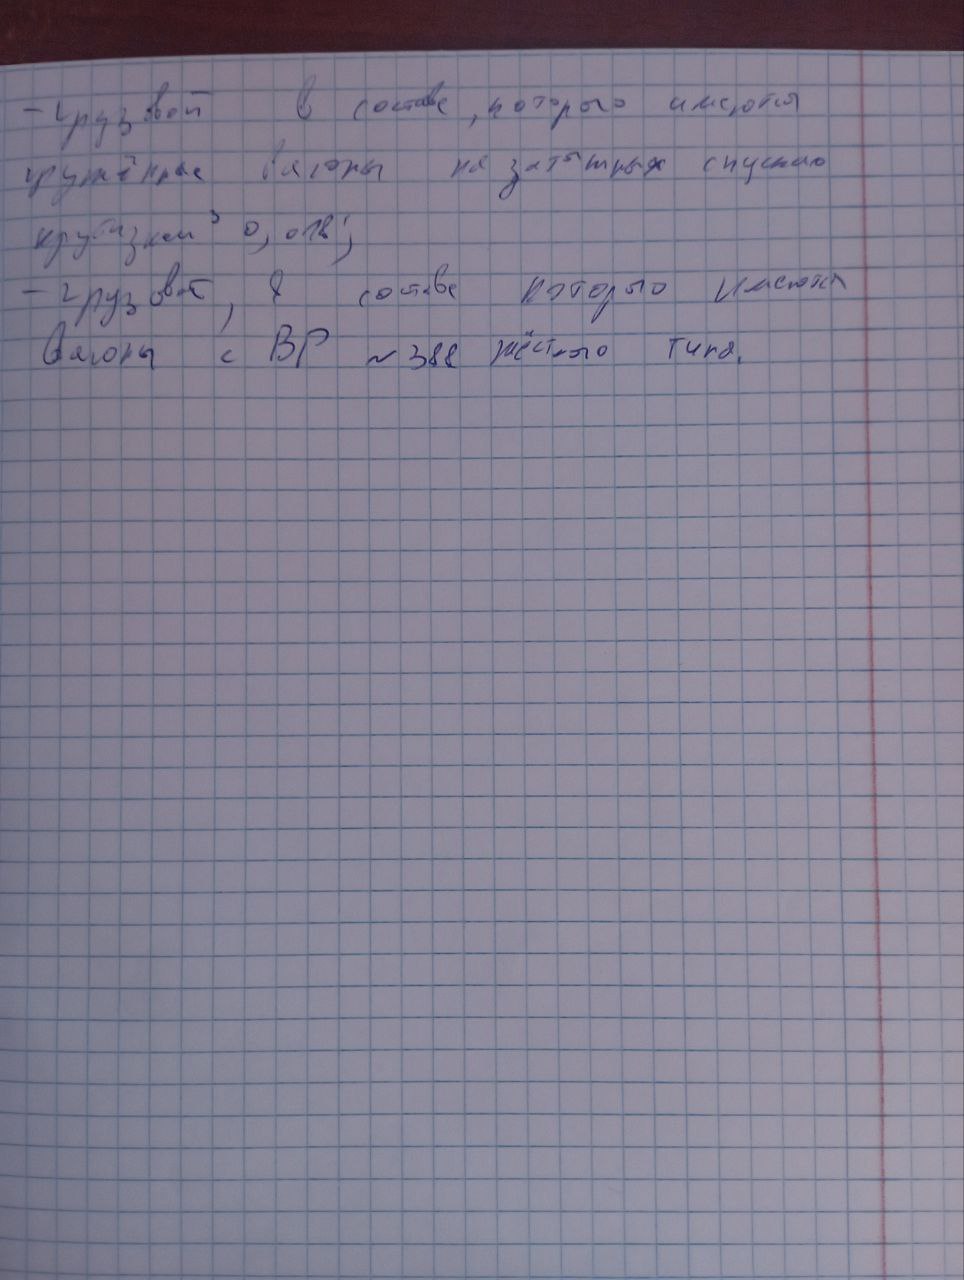 - грузовой в составе, которого имеются
гружённые вагоны на затяжных спусках
крутизной 0,018;
- грузовой, в составе которого имеются
вагоны с ВР №388 жёсткого типа.